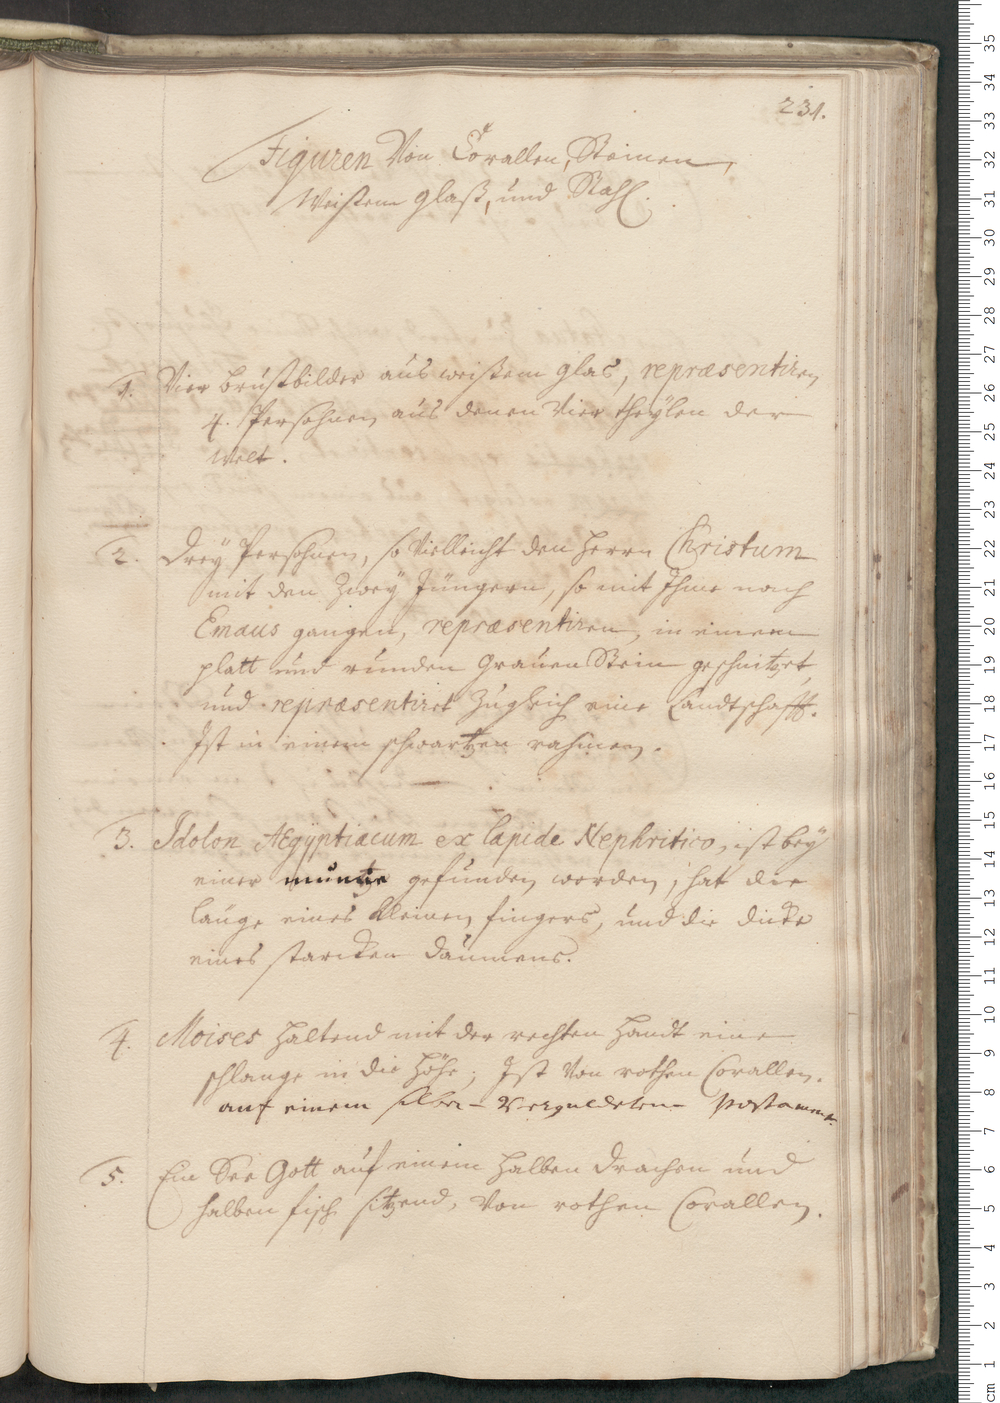 231.
Figuren Von Corallen, Steinen,
Weißem glaß, und Stahl.
1. Vier brustbilder aus weißem glas, repræsentiren
4. Persohnen aus denen Vier theÿlen der
welt.
2. Dreÿ Persohnen, so Villeicht den Herrn Christum
mit den Zweÿ Jüngern, so mit Ihme nach
Emaus gangen, repræsentiren, in einem
platt und runden Grauen Stein geschnitzet,
und repræsentiret Zugleich eine Landtschafft.
Ist in einem schwartzen rahmen.
3. Idolon Ægÿptiacum ex lapide Nephritico, ist beÿ
einer muntze gefunden worden, hat die
länge eines kleinen fingers, und die dicke
eines starcken daumens.
4. Moises haltend mit der rechten Handt eine
schlange in die Höhe; Ist Von rothen Corallen.
auf einem silber-Verguldeten- Postament.
5. Ein See Gott auf einem halben drachen und
halben fisch sitzend, Von rothen Corallen.
cm 1 2 3 4 5 6 7 8 9 10 11 12 13 14 15 16 17 18 19 20 21 22 23 24 25 26 27 28 29 30 31 32 33 34 35